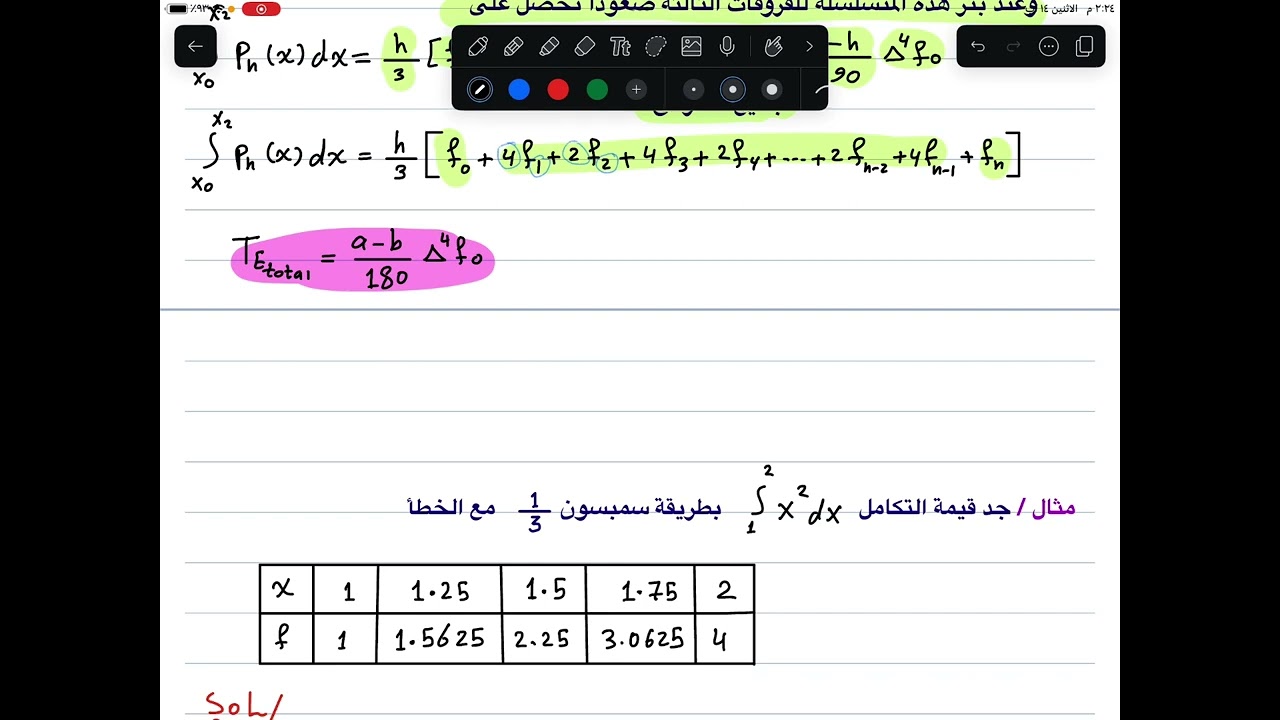 ٢:٢٤ م الاثنين ١٤
٩٣٪
وعند بتر هذه المتسلسلة للفروقات الثالثة صعوداً نحصل على
∫ₓ₀^x₂ Pₙ(x)dx = h/3 [ -h/90 Δ⁴f₀
Tt
∫ₓ₀^x₂ Pₙ(x)dx = h/3 [f₀ + 4f₁ + 2f₂ + 4f₃ + 2f₄ + ... + 2fₙ₋₂ + 4fₙ₋₁ + fₙ]
T_E_total = a-b/180 Δ⁴f₀
مثال / جد قيمة التكامل ∫₁² x² dx بطريقة سمبسون 1/3 مع الخطأ
x 1 1.25 1.5 1.75 2
f 1 1.5625 2.25 3.0625 4
SoL/